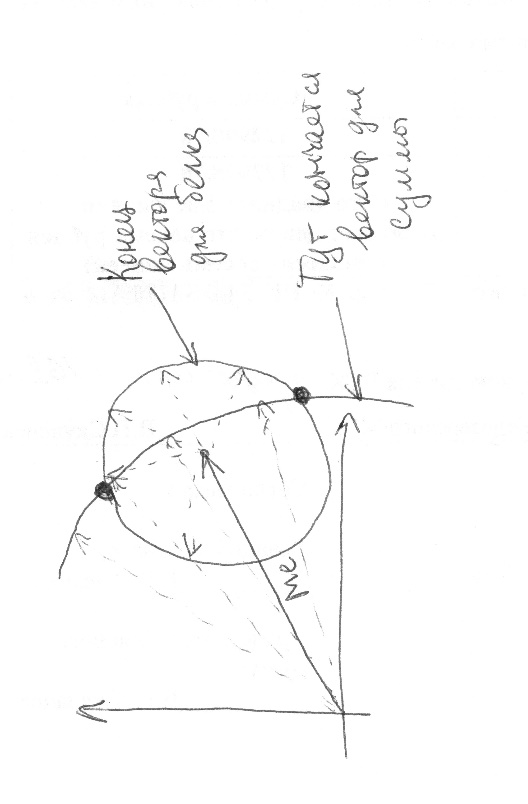 Конец
вектора
для белка
Тут кончается
вектор для
суммы
Ме